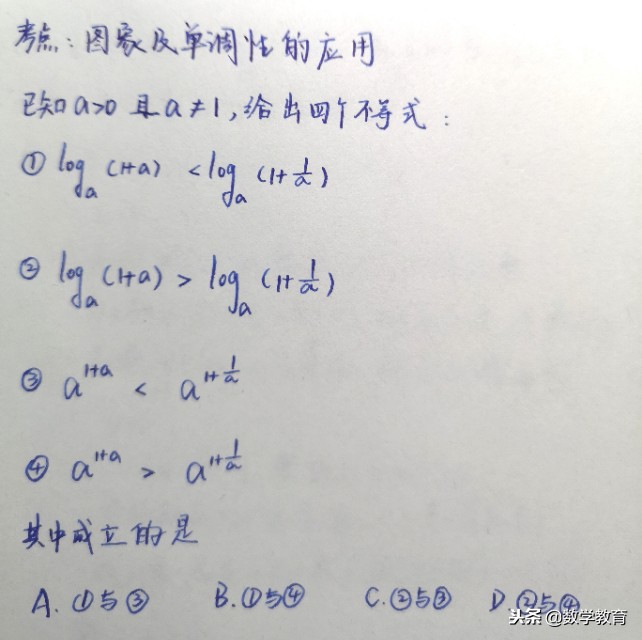 考点：图象及单调性的应用
已知a>0 且a≠1，给出四个不等式：
① logₐ(1+a) < logₐ(1+1/a)
② logₐ(1+a) > logₐ(1+1/a)
③ a^(1+a) < a^(1+1/a)
④ a^(1+a) > a^(1+1/a)
其中成立的是
A. ①与③ B. ①与④ C. ②与③ D ②与④
头条 @数学教育